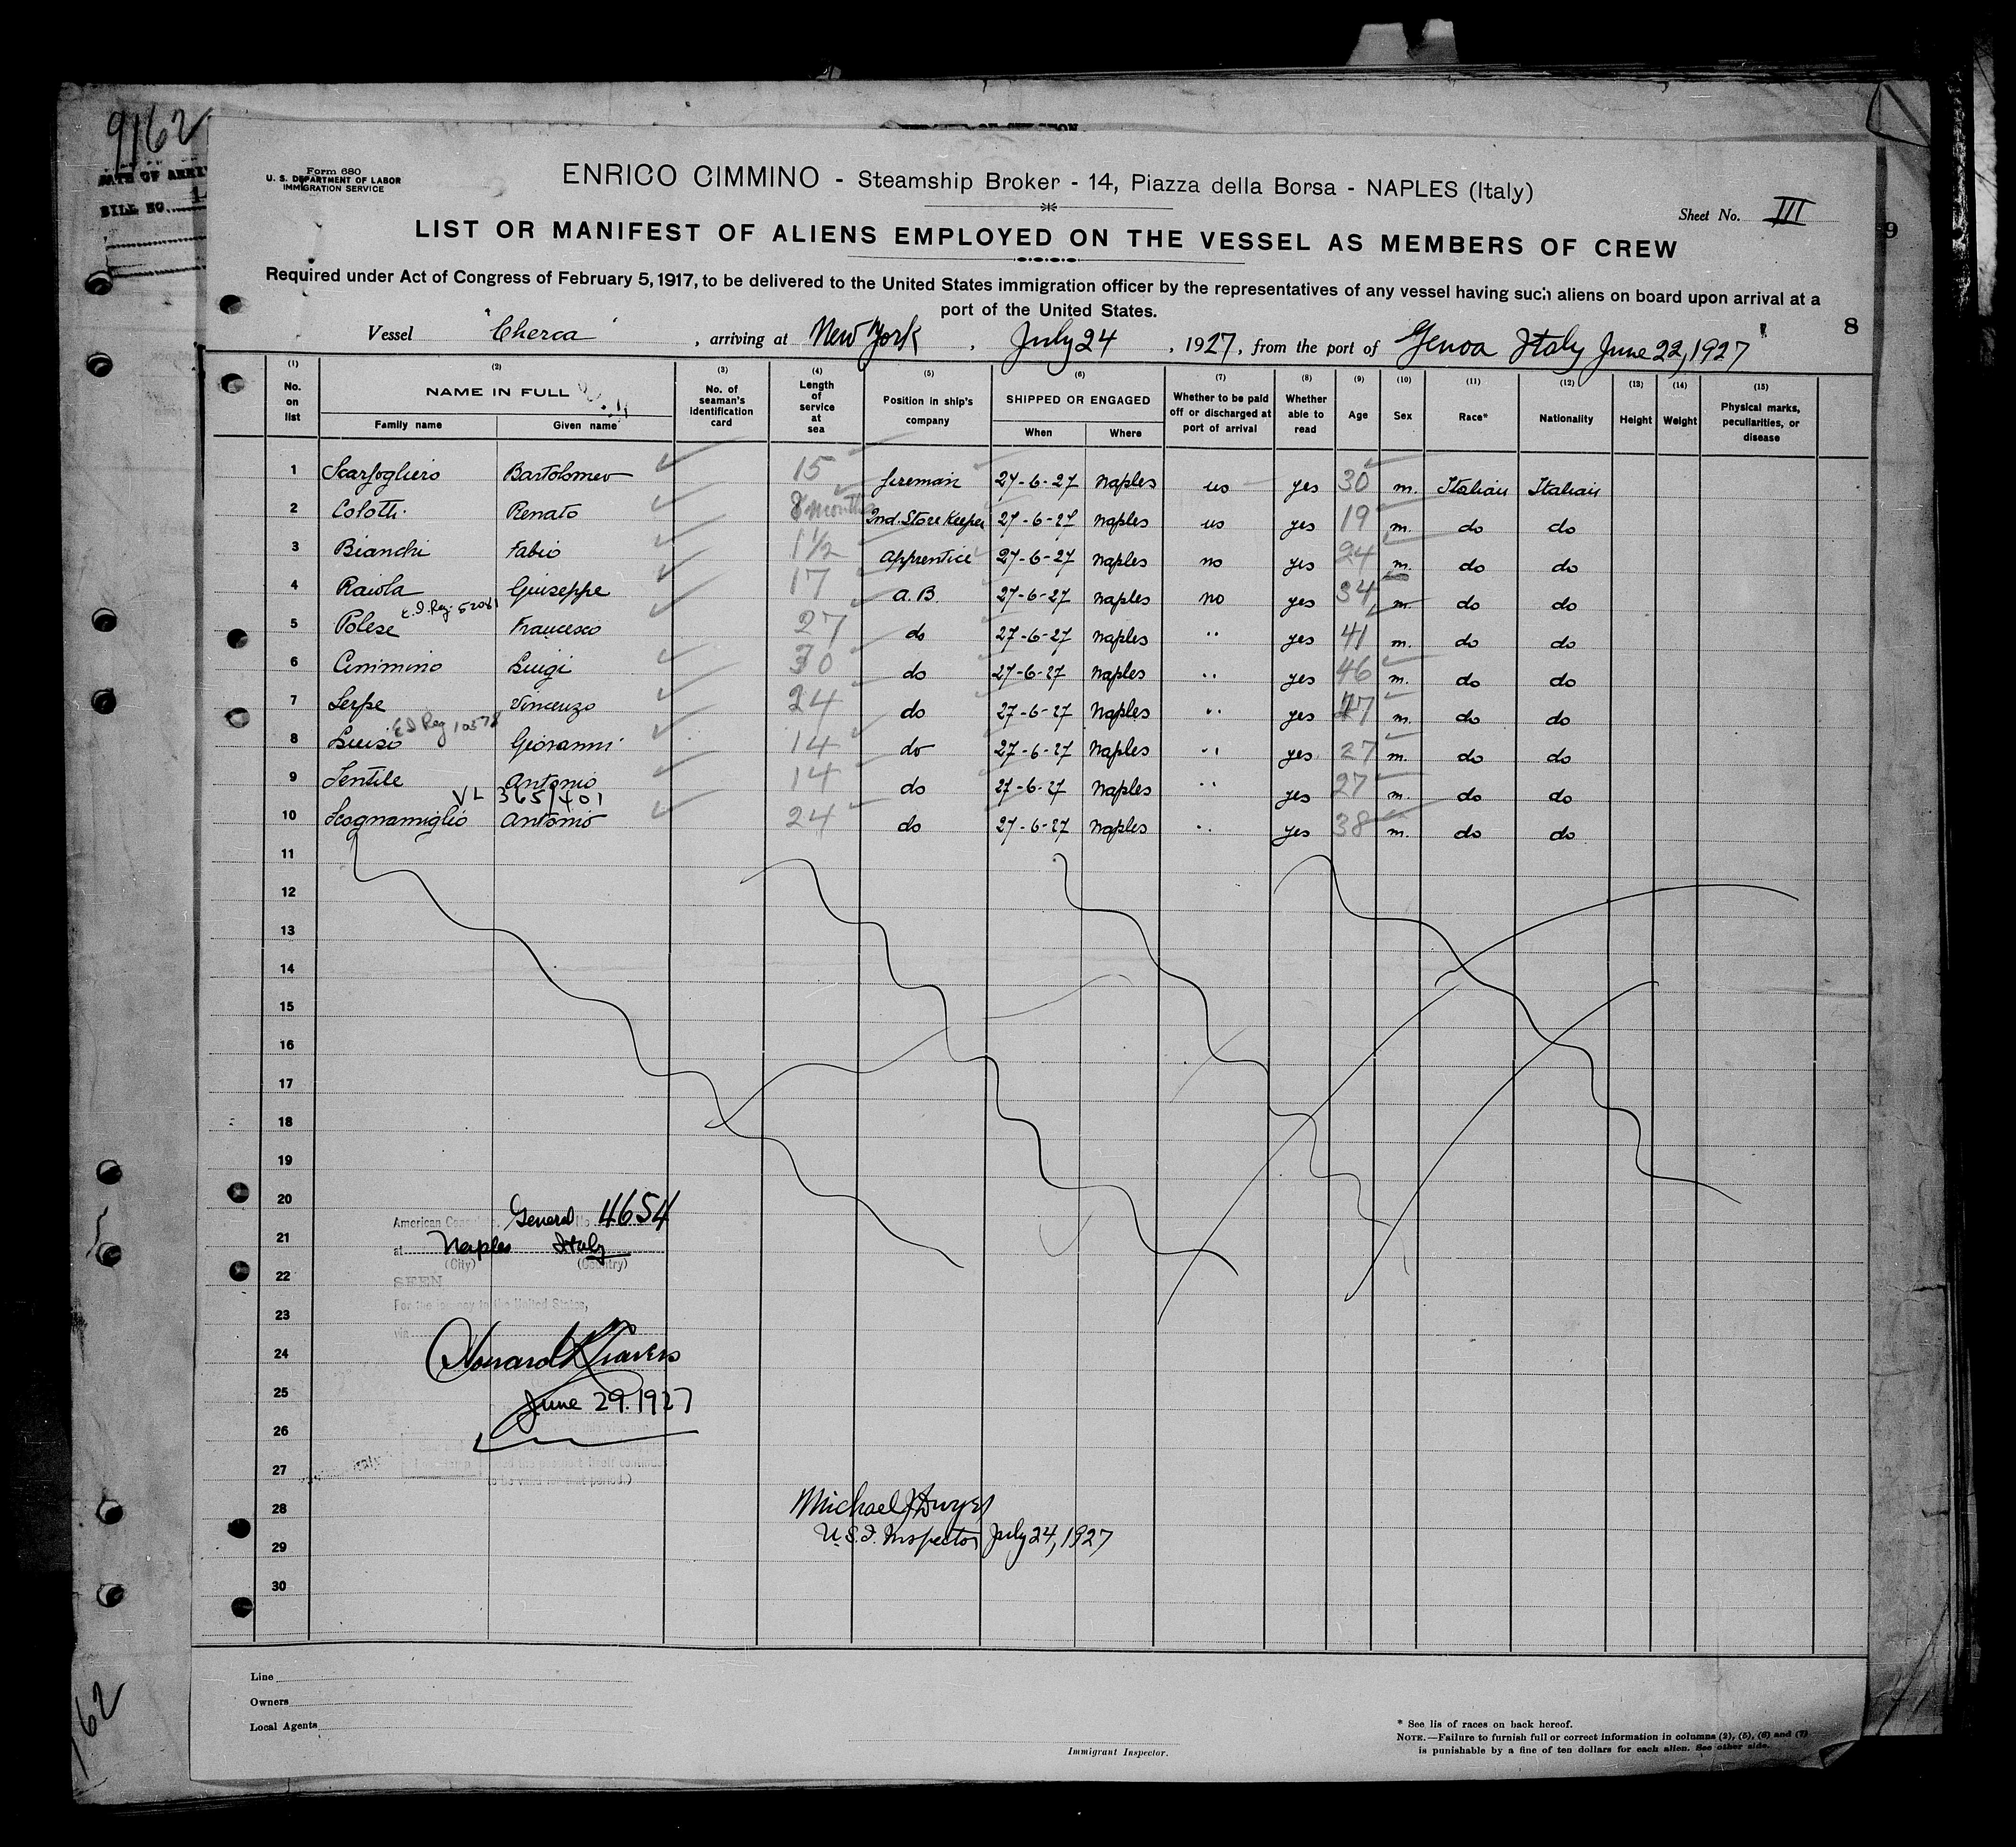 9162
DATE OF ARRI
BILL NO.
Form 680
U. S. DEPARTMENT OF LABOR
IMMIGRATION SERVICE
ENRICO CIMMINO - Steamship Broker - 14, Piazza della Borsa - NAPLES (Italy)
Sheet No. III
9
LIST OR MANIFEST OF ALIENS EMPLOYED ON THE VESSEL AS MEMBERS OF CREW
Required under Act of Congress of February 5, 1917, to be delivered to the United States immigration officer by the representatives of any vessel having such aliens on board upon arrival at a
port of the United States.
8
Vessel "Cherca" , arriving at New York , July 24 , 1927, from the port of Genoa Italy June 22, 1927
(1) (2) (3) (4) (5) (6) (7) (8) (9) (10) (11) (12) (13) (14) (15)
No. on list NAME IN FULL No. of seaman's identification card Length of service at sea Position in ship's company SHIPPED OR ENGAGED Whether to be paid off or discharged at port of arrival Whether able to read Age Sex Race* Nationality Height Weight Physical marks, peculiarities, or disease
Family name Given name When Where
1 Scarfogliero Bartolomeo 15 fireman 27-6-27 Naples no yes 30 m. Italian Italian
2 Colotti Renato 8 months 2nd. Store Keeper 27-6-27 Naples no yes 19 m. do do
3 Bianchi Fabio 1 1/2 apprentice 27-6-27 Naples no yes 24 m. do do
4 Raiola Giuseppe 17 a. B. 27-6-27 Naples no yes 34 m. do do
5 Polese Francesco 27 do 27-6-27 Naples " yes 41 m. do do
6 Cimmino Luigi 30 do 27-6-27 Naples " yes 46 m. do do
7 Serpe Vincenzo 24 do 27-6-27 Naples " yes m. do do
E I Reg 10578
8 Luiso Giovanni 14 do 27-6-27 Naples " yes 27 m. do do
9 Gentile Antonio 14 do 27-6-27 Naples " yes 27 m. do do
VL 365/401
10 Scognamiglio Antonio 24 do 27-6-27 Naples " yes 38 m. do do
11
12
13
14
15
16
17
18
19
20
American Consulate General No. 4654
21
at Naples Italy
(City) (Country)
22
SEEN
For the journey to the United States,
23
via
24
25
June 29. 1927
26
27
to be valid for that period.)
28
Michael J Dwyer
U.S.I. Inspector July 24, 1927
29
30
Line
Owners
Local Agents
62
Immigrant Inspector.
* See lis of races on back hereof.
NOTE.—Failure to furnish full or correct information in columns (2), (5), (6) and (7)
is punishable by a fine of ten dollars for each alien. See other side.